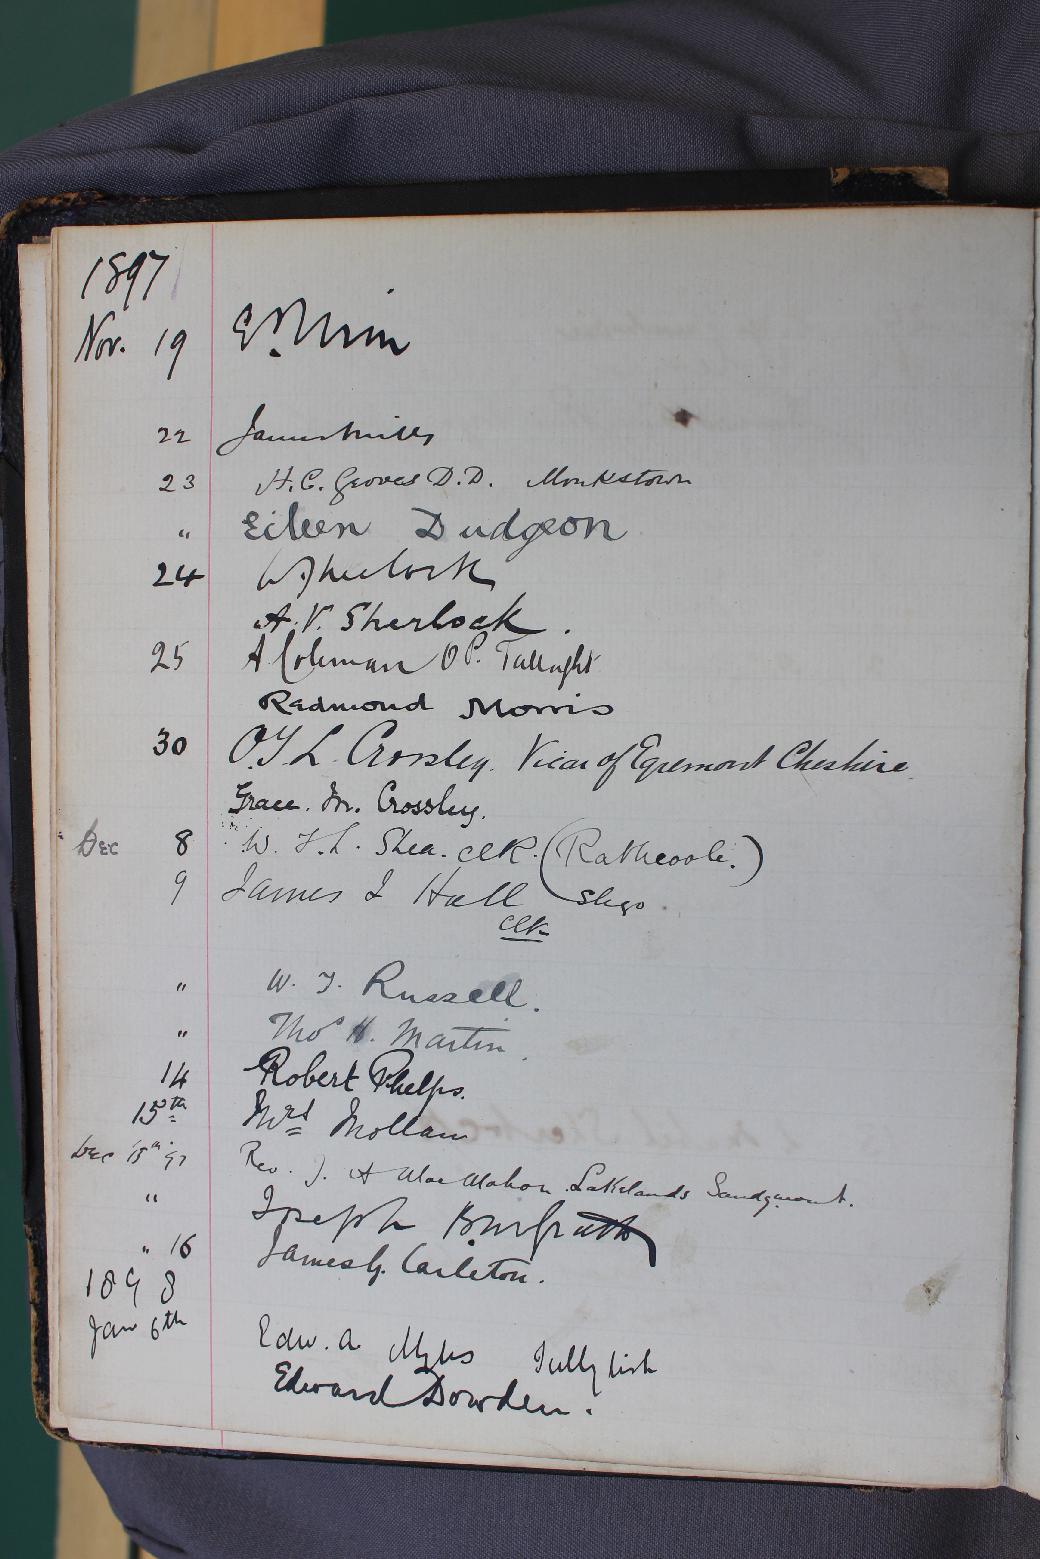 1897
Nov. 19
22 James Mills
23 H. C. Groves D.D. Monkstown
" Eileen Dudgeon
24 W Sherlock
A. V. Sherlock.
25 A Coleman O P. Tallaght
Redmond Morris
30 O. T L. Crossley. Vicar of Egremont Cheshire
Grace. M. Crossley.
Dec 8 W. F. L. Shea. Clk. (Rathcoole.)
9 James I Hall Sligo.
Clk
" W. J. Russell.
" Thos H. Martin.
14 Robert Phelps.
15th Mrs Mollan
Dec 15th 97 Rev. J. A MacMahon. Lakelands Sandymount.
" Joseph
" 16 James G. Carleton.
1898
Jan 6th
Edw. A Myles Tullylish
Edward Dowden.